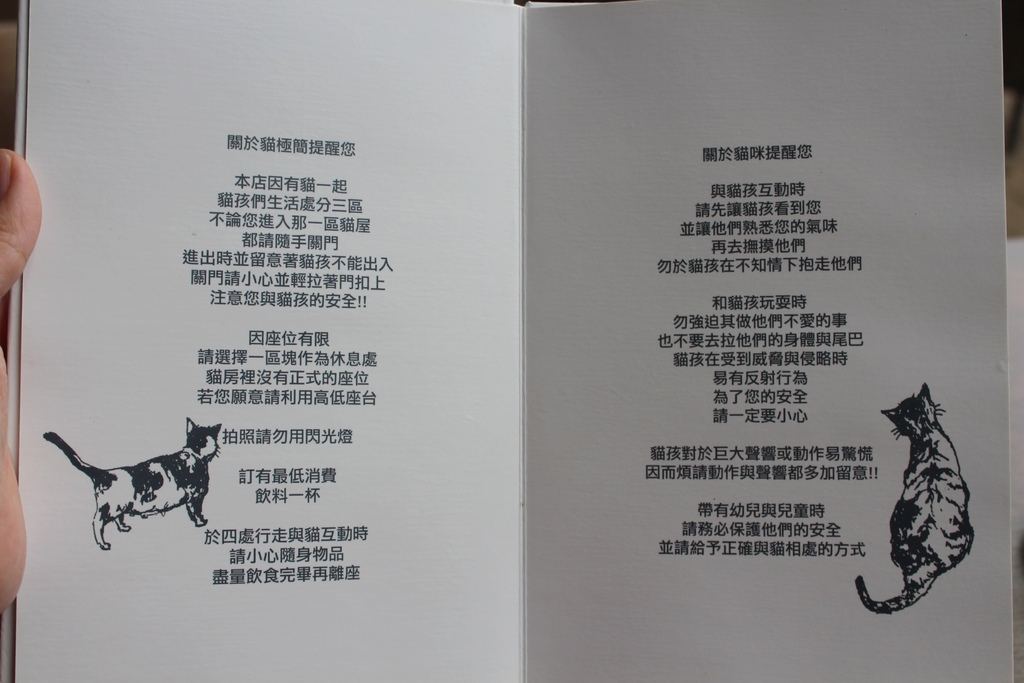 關於貓極簡提醒您
本店因有貓一起
貓孩們生活處分三區
不論您進入那一區貓屋
都請隨手關門
進出時並留意著貓孩不能出入
關門請小心並輕拉著門扣上
注意您與貓孩的安全!!
因座位有限
請選擇一區塊作為休息處
貓房裡沒有正式的座位
若您願意請利用高低座台
拍照請勿用閃光燈
訂有最低消費
飲料一杯
於四處行走與貓互動時
請小心隨身物品
盡量飲食完畢再離座
關於貓咪提醒您
與貓孩互動時
請先讓貓孩看到您
並讓他們熟悉您的氣味
再去撫摸他們
勿於貓孩在不知情下抱走他們
和貓孩玩耍時
勿強迫其做他們不愛的事
也不要去拉他們的身體與尾巴
貓孩在受到威脅與侵略時
易有反射行為
為了您的安全
請一定要小心
貓孩對於巨大聲響或動作易驚慌
因而煩請動作與聲響都多加留意!!
帶有幼兒與兒童時
請務必保護他們的安全
並請給予正確與貓相處的方式